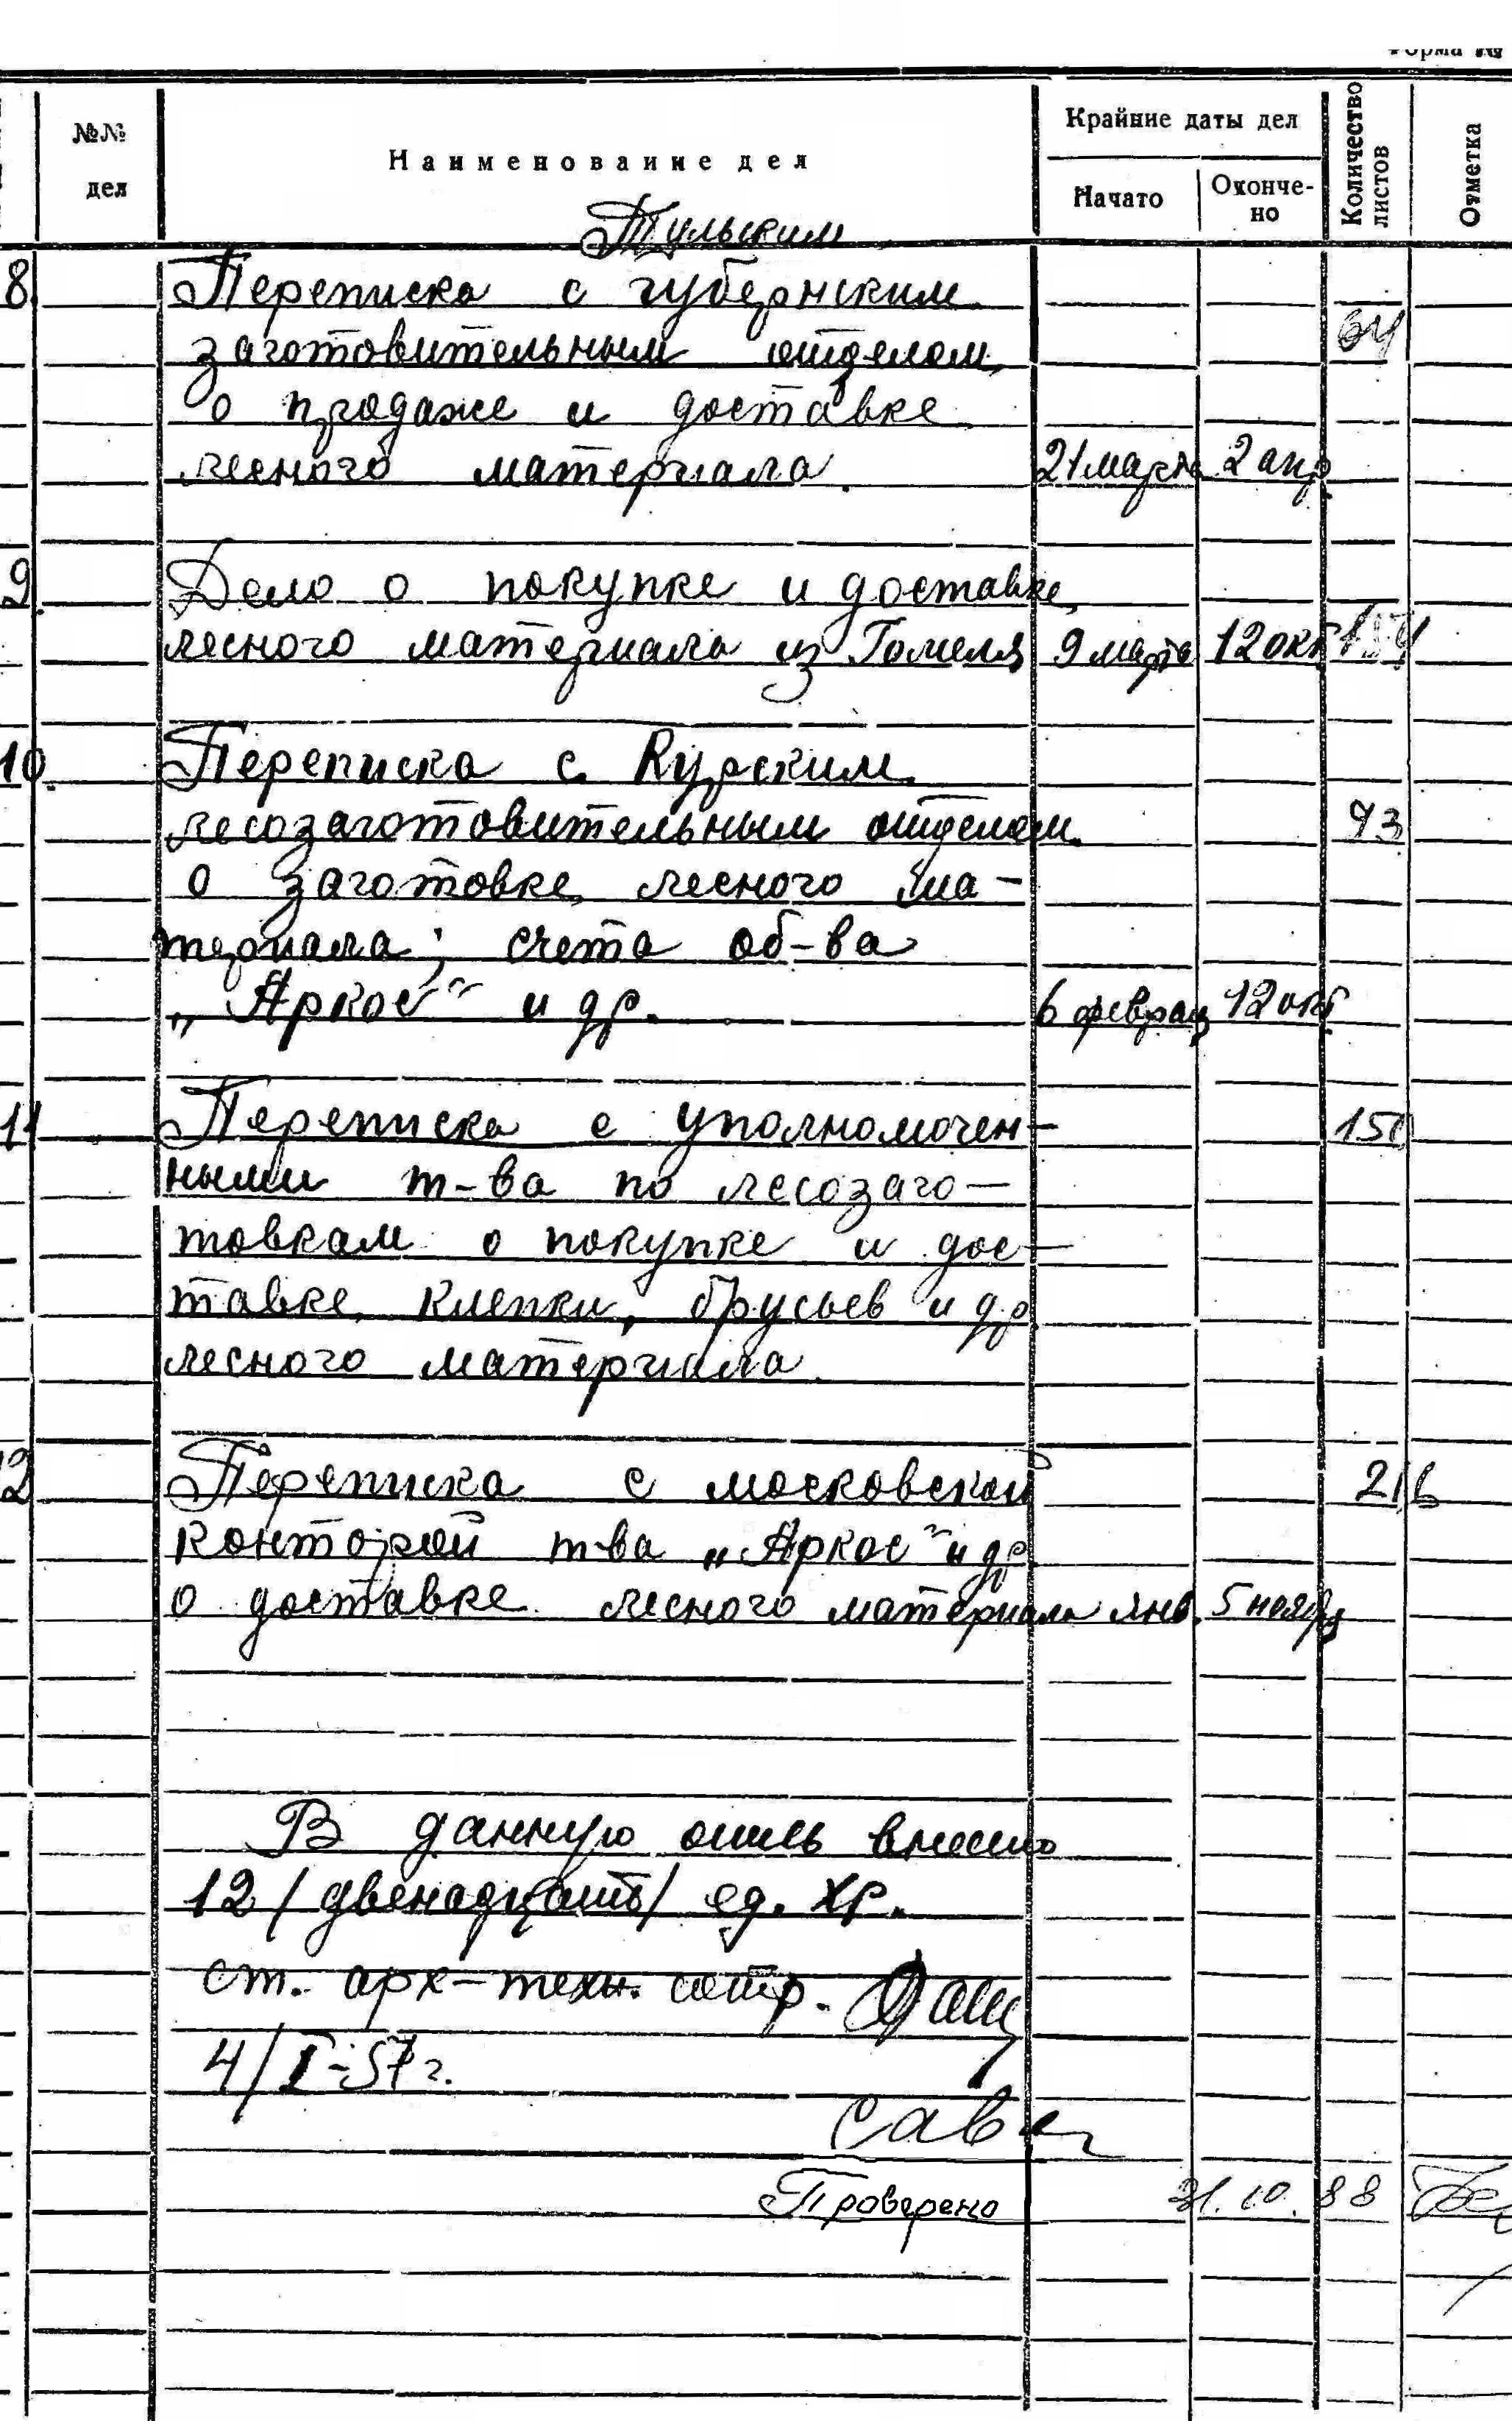 Форма №
№№ дел
Наименование дел
Крайние даты дел
Начато
Окончено
Количество листов
Отметка
Тульским
8. Переписка с губернским
заготовительным отделом 64
о продаже и доставке
лесного материала. 21 марта 2 апр.
9. Дело о покупке и доставке
лесного материала из Гомеля 9 марта 12 окт
10. Переписка с Курским
лесозаготовительным отделом 93
о заготовке лесного ма-
териала; счета об-ва
„Аркос" и др. 6 феврал 12 окт
11 Переписка с уполномочен- 150
ными т-ва по лесозаго-
товкам о покупке и дос-
тавке клепки, брусьев и др.
лесного материала.
12 Переписка с московской 216
конторой т-ва „Аркос" и др.
о доставке лесного материала янв. 5 ноября
В данную опись внесено
12 /двенадцать/ ед. хр.
ст. арх-техн. сотр.
4/I-57 г.
Проверено 31.10.88